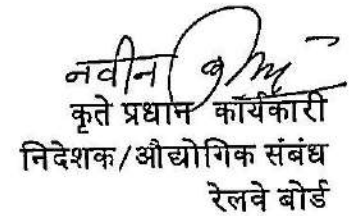 नवीन
कृते प्रधान कार्यकारी
निदेशक/औद्योगिक संबंध
रेलवे बोर्ड